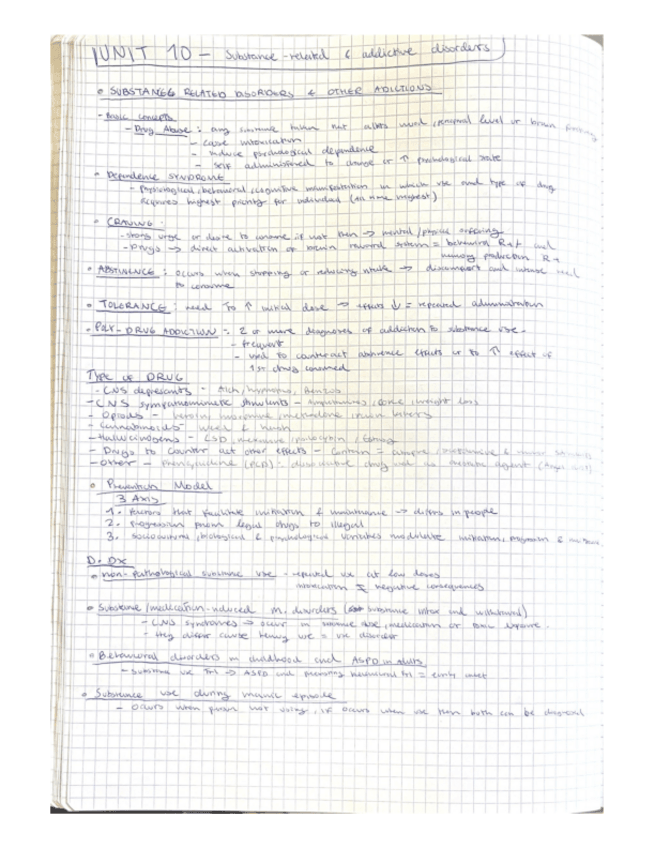 UNIT 10 - Substance-related & addictive disorders
• SUBSTANCES RELATED DISORDERS & OTHER ADICTIONS
- Basic concepts
- Drug Abuse : any substance taken that alters mood, level or brain
- cause intoxication
- induce psychological dependence
- self administered to change or ↑ psychological state
• Dependence SYNDROME
- Physiological, behavioral, cognitive manifestation in which use and type of drug
requires highest priority for individual
• CRAVING :
- strong urge or desire to consume if not then → mental/physical suffering
- Drugs → direct activation of brain reward system = behavior R+ and
memory production R+
• ABSTINENCE : occurs when stopping or reducing intake → discomfort and intense need
to consume
• TOLERANCE : need to ↑ initial dose → effects ↓ = repeated administration
• POLY-DRUG ADDICTION : 2 or more diagnoses of addiction to substance use.
- frequent
- used to counteract abstinence effects or to ↑ effect of
1st drug consumed
TYPE OF DRUG
- CNS depresants - Alch, hypnotics, Benzos
- CNS sympathomimetic stimulants - Amphetamines, coke, weight loss
- Opioids - heroin, morphine, methadone, pain killers
- Cannabinoids - weed & hash
- Hallucinogens - LSD, mescaline, psilocybin,
- Drugs to counter act other effects -
- Other - Phencyclidine (PCP) : dissociative drug used as anesthetic agent
• Prevention Model
3 Axis
1. Factors that facilitate initiation & maintenance → differs in people
2. Progression from legal drugs to illegal
3. Sociocultural, biological & psychological variables modulate initiation,
D. Dx
• non-Pathological substance use - repeated use at low doses
intoxication ≠ negative consequences
• Substance/medication-induced m. disorders
- CNS syndromes → occur in substance use, medication or
- They differ cause heavy use = use disorder
• Behavioral disorders in childhood and ASPD in adults
- Substance use → ASPD and = early onset
• Substance use during manic episode
- Occurs when person not using, if occurs when use then both can be diagnosed